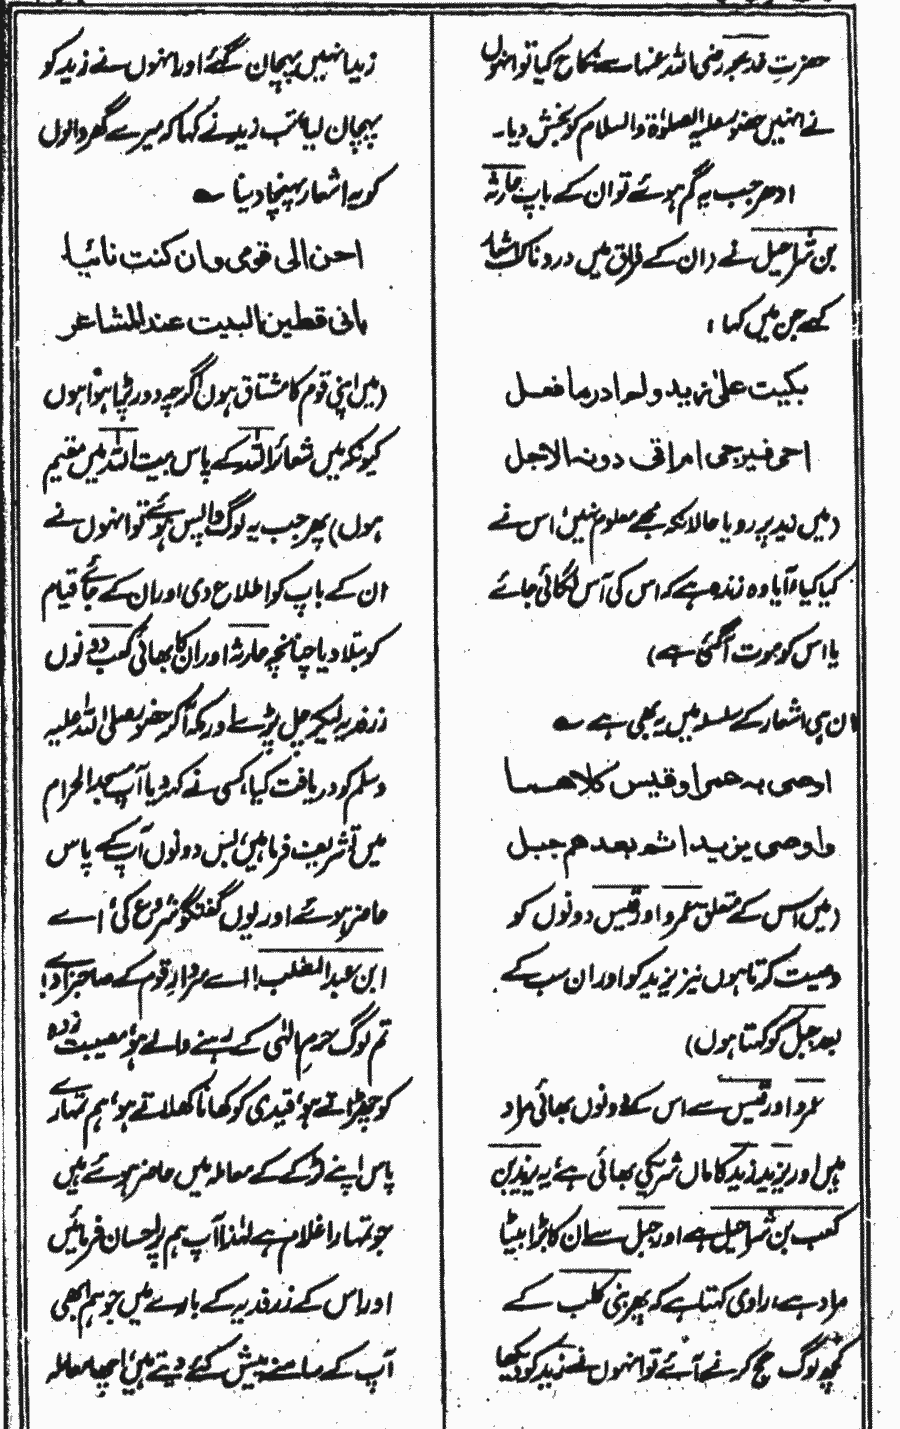 حضرتِ خدیجہ رضی اللہ عنہا سے نکاح کیا تو انہوں
نے انہیں حضور علیہ الصلوٰۃ والسلام کو بخش دیا۔
ادھر جب یہ گم ہوئے تو ان کے باپ حارثہ
بن شراحیل نے (ان کے فراق میں دردناک اشعار
کہے جن میں کہا :
بکیت علیٰ زید ولم ادر ما فعل
احی فیرجی ام اتی دونہ الاجل
(میں زید پر رویا حالانکہ مجھے معلوم نہیں، اس نے
کیا کیا، آیا وہ زندہ ہے کہ اس کی آس لگائی جائے
یا اس کو موت آگئی ہے)
ان ہی اشعار کے سلسلہ میں یہ بھی ہے
اوصی بہ عمرا وقیس کلاھما
واوصی یزیدا ثم بعدھم جبل
(میں اس کے متعلق عمرو اور قیس دونوں کو
وصیت کرتا ہوں نیز یزید کو اور ان سب کے
بعد جبل کو کہتا ہوں)
عمرو اور قیس سے اس کے دونوں بھائی مراد
ہیں اور یزید زید کا ماں شریکی بھائی ہے یہ یزید بن
کعب بن شراحیل ہے اور جبل سے ان کا بڑا بیٹا
مراد ہے، راوی کہتا ہے کہ پھر بنی کلب کے
کچھ لوگ حج کرنے آئے تو انہوں نے زید کو دیکھا
زید یا انہیں پہچان گئے اور انہوں نے زید کو
پہچان لیا تب زید نے کہا کہ میرے گھر والوں
کو یہ اشعار پہنچا دینا
احن الی قومی وان کنت نائیا
بانی قطین البیت عند المشاعر
(میں اپنی قوم کا مشتاق ہوں اگرچہ دور پڑا ہوا ہوں
کیونکہ میں شعائر اللہ کے پاس بیت اللہ میں مقیم
ہوں) پھر جب یہ لوگ واپس ہوئے تو انہوں نے
ان کے باپ کو اطلاع دی اور ان کے جائے قیام
کو بتلا دیا چنانچہ حارثہ اور ان کا بھائی کعب دونوں
زرفدیہ لیکر چل پڑے اور مکہ آ کر حضور صلی اللہ علیہ
وسلم کو دریافت کیا، کسی نے کہدیا آپ مسجد الحرام
میں تشریف فرما ہیں، بس دونوں آپ کے پاس
حاضر ہوئے اور یوں گفتگو شروع کی، اے
ابن عبد المطلب! اے سردارِ قوم کے صاحبزادے!
تم لوگ حرمِ الٰہی کے رہنے والے ہو، مصیبت زدہ
کو چھڑاتے ہو، قیدی کو کھانا کھلاتے ہو، ہم تمہارے
پاس اپنے لڑکے کے معاملہ میں حاضر ہوئے ہیں
جو تمہارا غلام ہے لہٰذا آپ ہم پر احسان فرمائیں
اور اس کے زرفدیہ کے بارے میں جو ہم ابھی
آپ کے سامنے پیش کئے دیتے ہیں، اچھا معاملہ